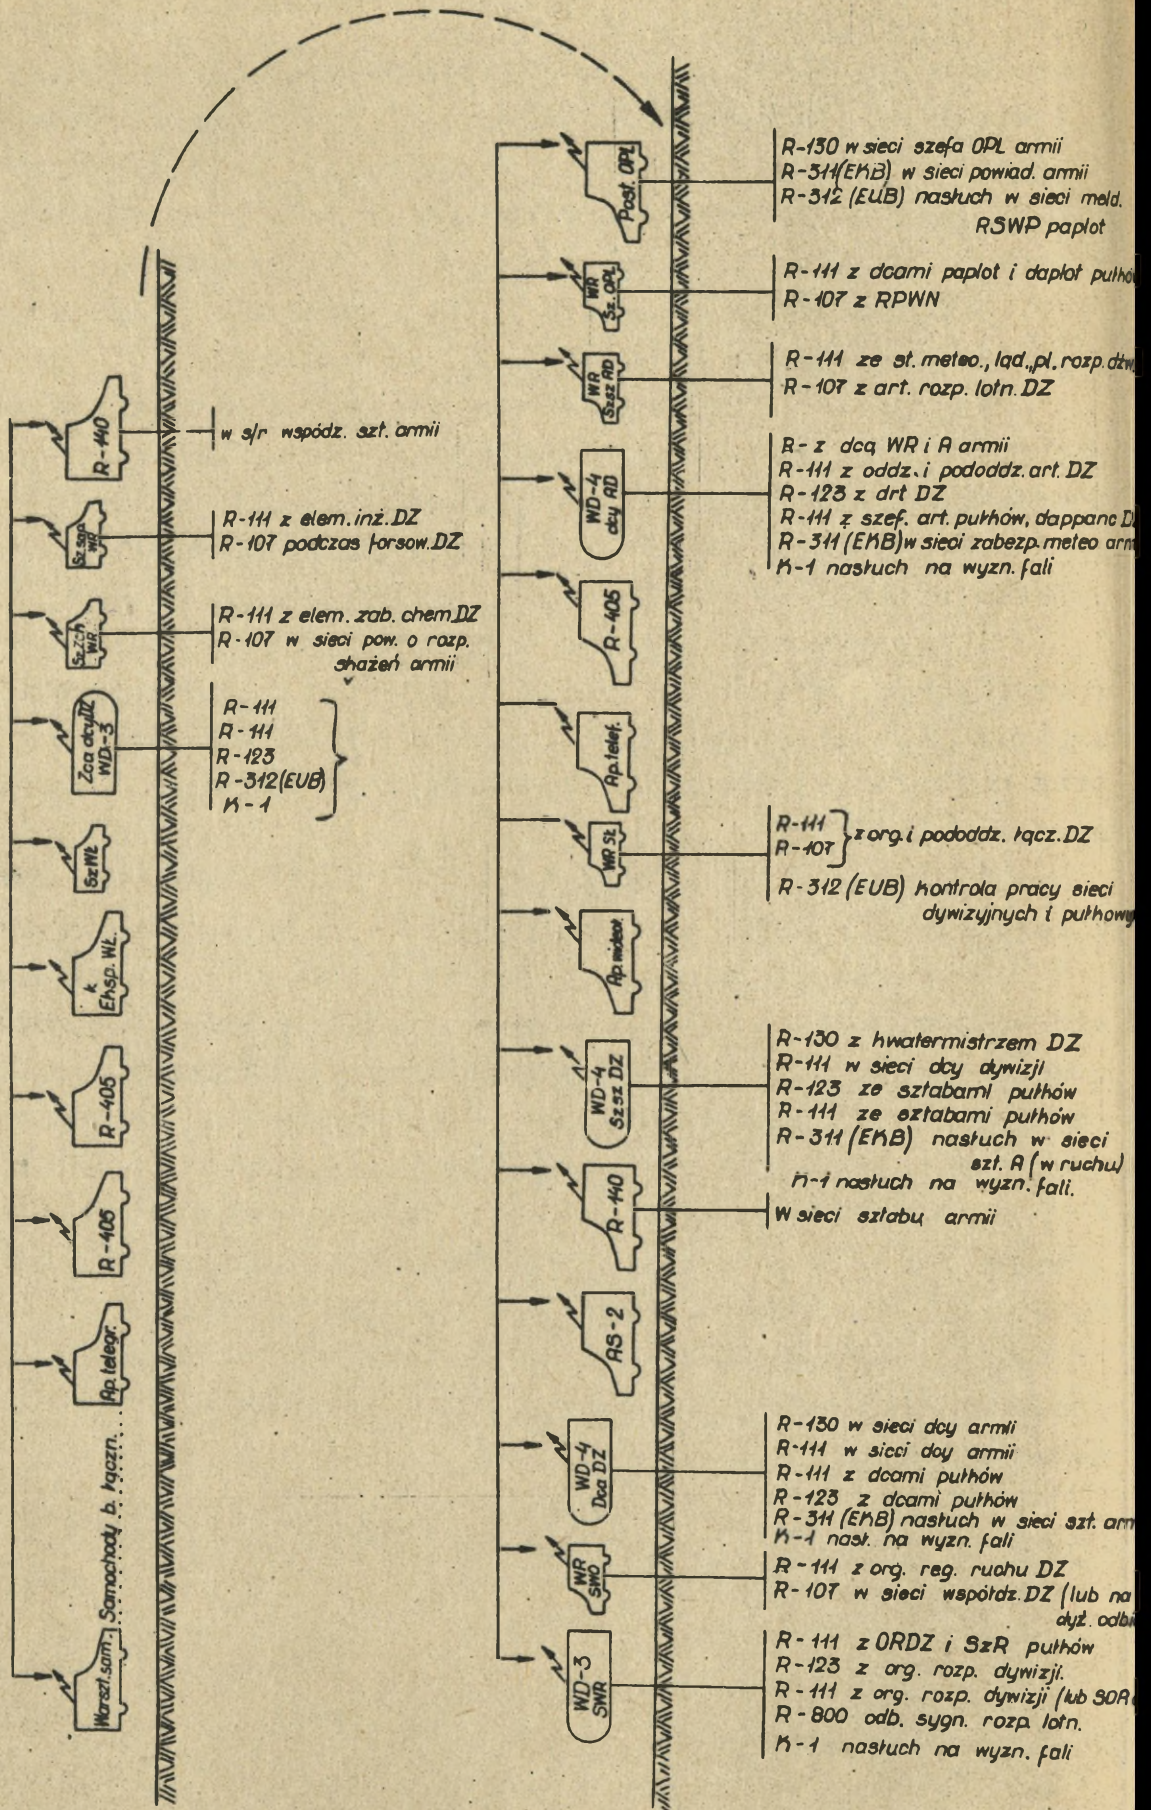 R-140
w s/r wspódz. szt. armii
Sz.sap.
WR
R-111 z elem. inż. DZ
R-107 podczas forsow. DZ
Sz.Zch
WR
R-111 z elem. zab. chem. DZ
R-107 w sieci pow. o rozp.
skażeń armii
Zca dcy DZ
WD-3
R-111
R-111
R-123
R-312 (EUB)
K-1
Sz WŁ
k
Eksp. WŁ.
R-405
R-405
Ap. telegr.
Samochody b. łączn.
Warszt. sam.
Post. OPL
R-130 w sieci szefa OPL armii
R-311 (EKB) w sieci powiad. armii
R-312 (EUB) nasłuch w sieci meld.
RSWP paplot
WR
Sz. OPL
R-111 z dcami paplot i daplot
R-107 z RPWN
WR
Szsz AD
R-111 ze st. meteo., ląd., pl. rozp.
R-107 z art. rozp. lotn. DZ
WD-4
dcy AD
R- z dcą WR i A armii
R-111 z oddz. i pododdz. art. DZ
R-123 z drt DZ
R-111 z szef. art. pułków, dappanc
R-311 (EKB) w sieci zabezp. meteo
K-1 nasłuch na wyzn. fali
R-405
Ap. telef.
WR SŁ
R-111
R-107
z org. i pododdz. łącz. DZ
R-312 (EUB) kontrola pracy sieci
dywizyjnych i
WD-4
Szsz DZ
R-130 z kwatermistrzem DZ
R-111 w sieci dcy dywizji
R-123 ze sztabami pułków
R-111 ze sztabami pułków
R-311 (EKB) nasłuch w sieci
szt. A (w ruchu)
K-1 nasłuch na wyzn. fali.
R-140
W sieci sztabu armii
AS-2
WD-4
Dca DZ
R-130 w sieci dcy armii
R-111 w sieci dcy armii
R-111 z dcami pułków
R-123 z dcami pułków
R-311 (EKB) nasłuch w sieci szt.
K-1 nasł. na wyzn. fali
WR
SWO
R-111 z org. reg. ruchu DZ
R-107 w sieci współdz. DZ (lub na
dyż.
WD-3
SWR
R-111 z ORDZ i SzR pułków
R-123 z org. rozp. dywizji.
R-111 z org. rozp. dywizji (lub
R-800 odb. sygn. rozp. lotn.
K-1 nasłuch na wyzn. fali